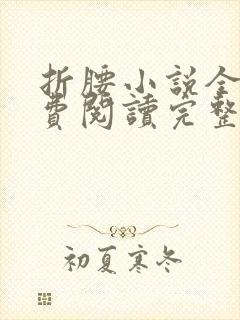 折腰小說全
費閱讀完整
初夏寒冬